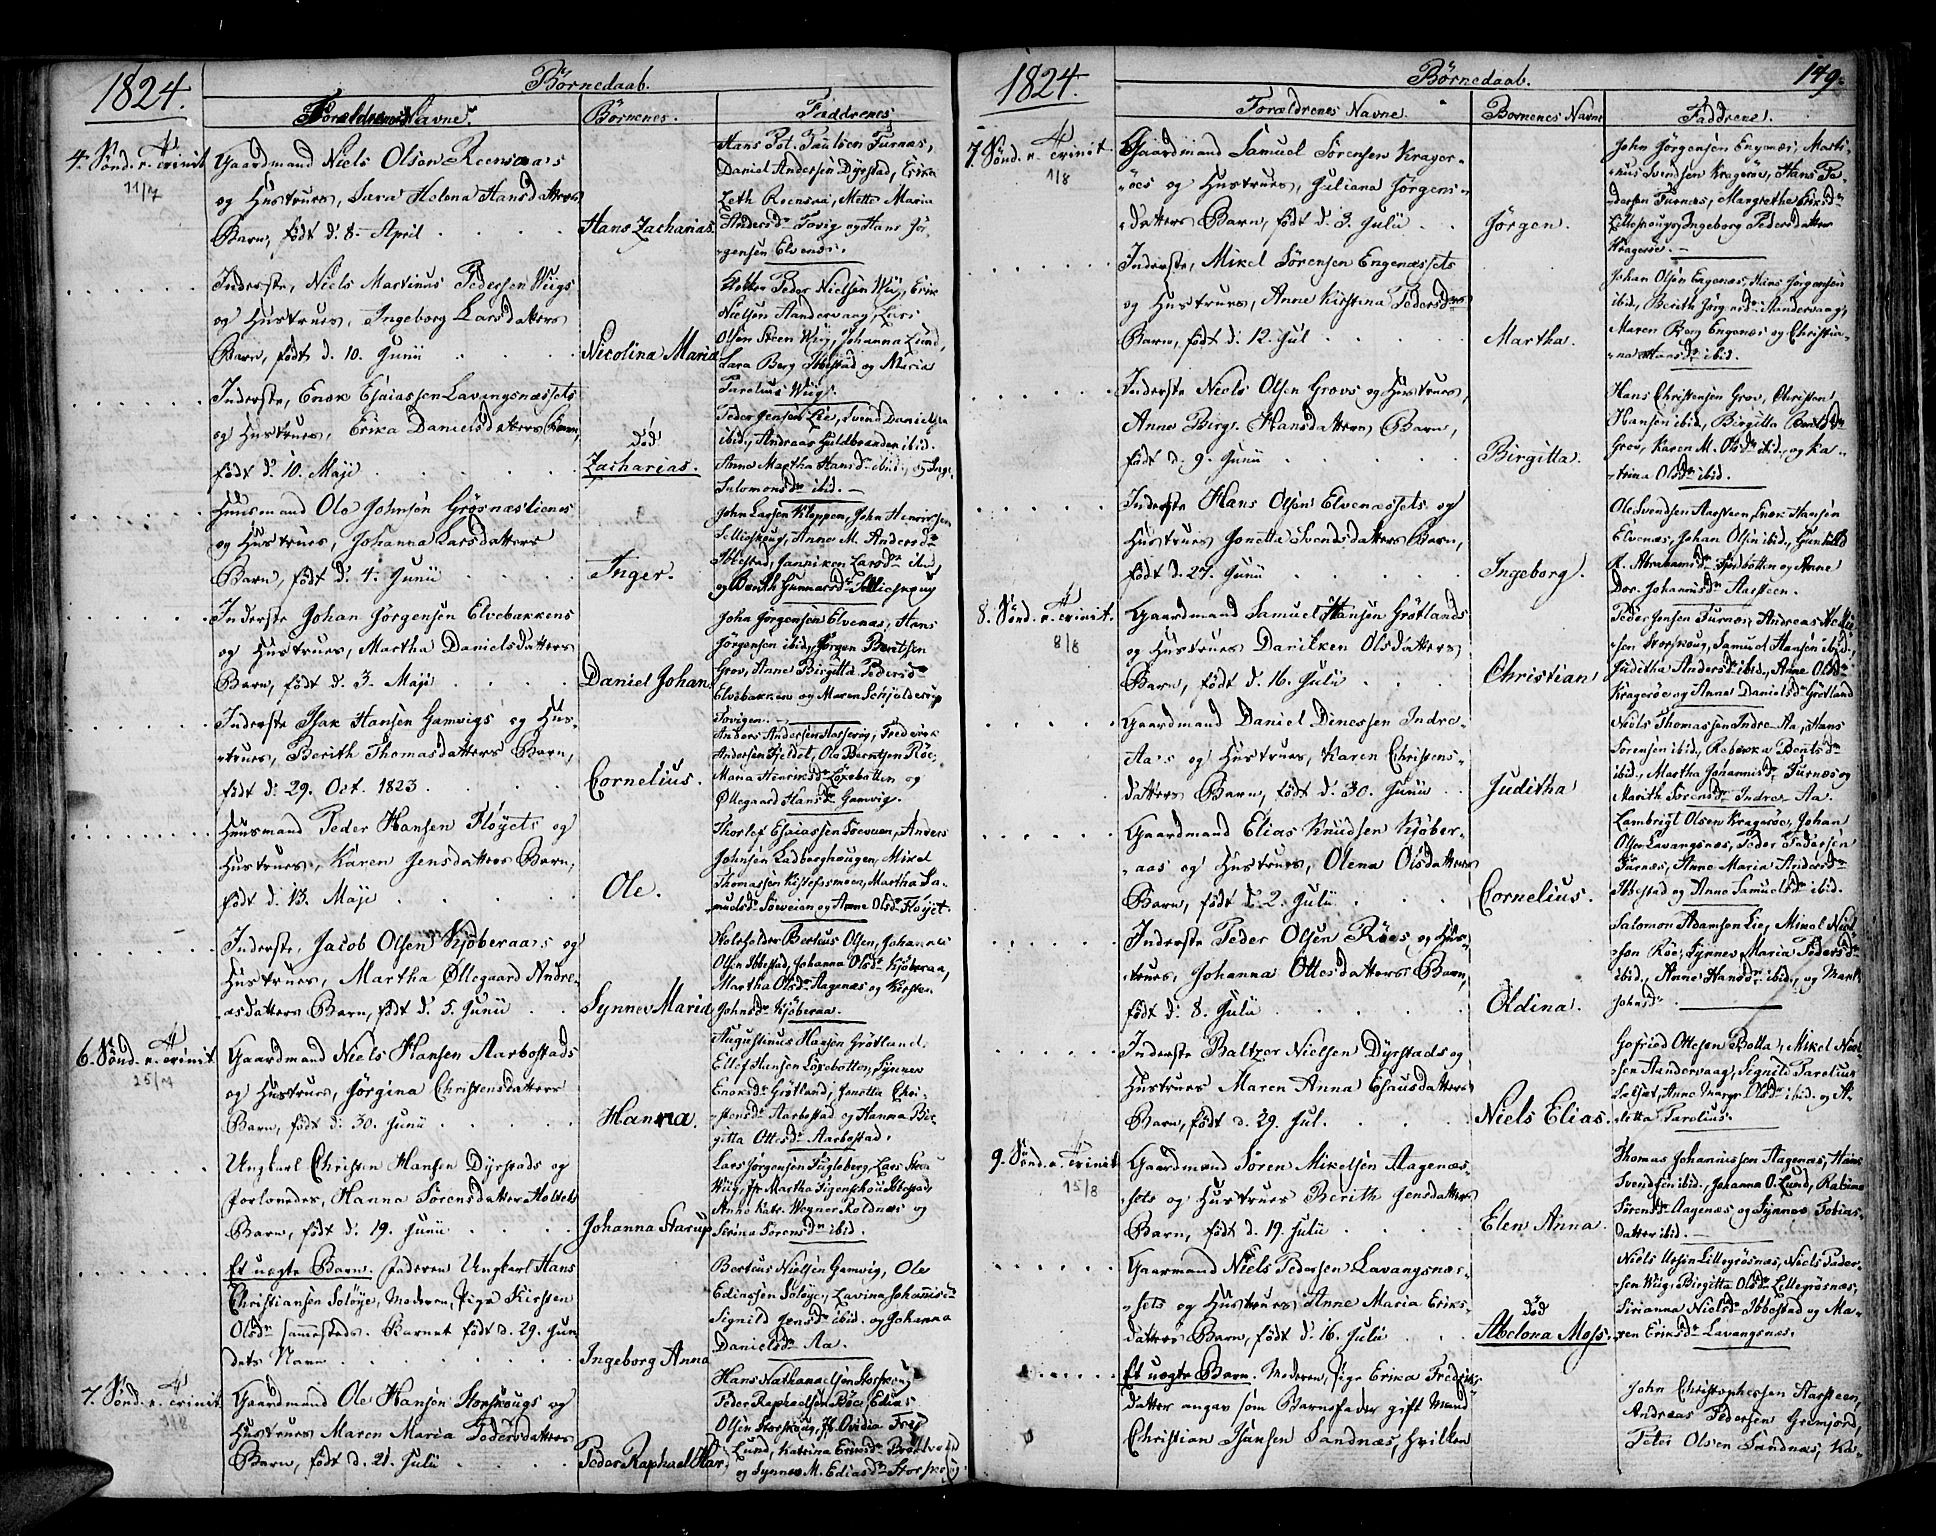 1824.
Börnedaab.
Forældrenes Navne.
Börnenes.
Faddrenes
4. Sönd. n. Trinit.
11/7
Gaardmand Niels Olsen Roensaaes
og Hustrues, Sara Helena Hansdatters
Barn, født d: 8. April
Hans Zacharias.
Hans Pet. Paulsen Furnæs,
Daniel Andersen Dyrstad, Erika
Zeth Roensaa, Mette Maria
Andersdr Tovig og Hans Jör-
gensen Elvenæs.
Inderste, Niels Martinus Pedersen Wiigs
og Hustrues, Ingeborg Larsdatters
Barn, født d. 10. Junii
Nicolina Maria
Peder Nielsen Wiig, Erik
Nielsen Aandervaag, Lars
Olsen Steen Wiig, Johanna Lund,
Sara Berg Ibbestad og Maria
Parelius Wiig.
Inderste, Enok Esaiassen Lavingsnæssets
og Hustrues, Erika Danielsdatters Barn,
født d. 10. Maji
død
Zacharias.
Peder Jensen Lie, Svend Danielsen
ibid., Andreas Guldbrandsen ibid.
Anne Martha Hansdr ibid., og Ing.
Salomonsdr ibid.
Huusmand Ole Johnsen Grøsnæslienes
og Hustrues, Johanna Larsdatters
Barn, født d. 4. Junii
Inger.
John Larsen Kloppen, John Henrichsen
Sellieskoug, Anne M. Andersdr
Ibbestad, Janniken Larsdr ibid
og Berith Gunnarsdr Sellieskoug
Inderste Johan Jørgensen Elvebakkens
og Hustrues, Martha Danielsdatters
Barn, født d. 3. Maji
Daniel Johan.
John Jørgensen Elvenæs, Hans
Jørgensen ibid, Jørgen Berntsen
Grov, Anne Birgitta Pedersd
Elvebakken og Maren Schjelderup
Tovigen.
Inderste Isak Hansen Gamvigs og Hus-
trues, Berith Thomasdatters Barn,
født d: 29. Oct. 1823
Cornelius.
Anders Andersen Hassevig, Frederik
Andersen Fieldet, Ole Berntsen Röe,
Maria Henriksdr Löxebotten og
Øllegaard Hansdr Gamvig.
Huusmand Peder Hansen Fløyets og
Hustrues, Karen Jensdatters Barn,
født d. 13. Maji
Ole.
Thorlef Esaiassen Søeveien, Anders
Johnsen Ladberghougen, Mikel
Thomassen Kistefossmoen, Martha Sa-
muelsdr Søeveien og Anne Olsdr Fløyet.
Inderste, Jacob Olsen Kjøberaaes og
Hustrues, Martha Øllegaard Andre-
asdatters Barn, født d. 5. Junii
Synnev Maria
Holsholder Berteus Olsen, Johannes
Olsen Ibbestad, Johanna Olsdr Kjøberaa,
Martha Olsdr Aagenæs og Kirsten
Johnsdr Kjøberaa.
6. Sönd. n. Trinit.
25/7
Gaardmand Niels Hansen Aarbostads
og Hustrues, Jørgina Christensdatters
Barn, født d: 30. Junii
Hanna.
Augustinus Hansen Grötland,
Ellef Hansen Löxebotten, Synnev
Enoksdr Grötland, Jonetta Chri-
stensdr Aarbostad og Hanna Bir-
gitta Ottesdr Aarbostad.
Ungkarl Christen Hansen Dyrstads og
forlovedes, Hanna Sørensdatter Holtets
Barn, født d: 19. Junii
Johanna Starup
Lars Jørgensen Fugleberg, Lars Steen
Wiig, Jfr Martha Figenschou Ibbestad,
Anne Katr. Wegner Roldnæs og
Serina Sørensdr ibid.
Et uægte Barn. Faderen Ungkarl Hans
Christiansen Soløye, Moderen, Pige Kirsten
Olsdr sammesteds. Barnet født d. 29. Jun
dets Navn
Ingeborg Anna
Berteus Nielsen Gamvig, Ole
Ediassen Soløye, Lavina Johannisdr
Signild Jensdr ibid. og Johanna
Danielsdr Aa.
7. Sönd. n. Trinit.
1/8
Gaardmand Ole Hansen Storskougs og
Hustrues Maren Maria Pedersdatters
Barn, født d. 21. Julii
Peder Raphael Har.
Hans Nathanaelsen Storskoug
Peder Raphaelsen Böe, Edias
Olsen Storskoug, Jfr Ovidia
Lund, Katrina Eriksdr
og Synnev M. Ediasdr Storskoug.
1824.
Börnedaab.
149.
Forældrenes Navne.
Börnenes Navne
Faddrene.
7. Sönd. n. Trinit.
1/8
Gaardmand Samuel Sørensen Krager-
öes og Hustrues, Juliana Jörgens-
datters Barn, født d. 3. Julii
Jörgen.
John Jørgensen Engenæs, Marti-
nus Svendsen Kragerøe, Hans Pe-
dersen Furnæs, Margrethe Eriksdr
Lilleskoug, Ingeborg Pedersdatter
Kragerøe.
Inderste, Mikel Sørensen Engenæssets
og Hustrues, Anne Kirstina Pedersdrs
Barn, født d. 12. Jul
Martha.
Johan Olsen Engenæs, Hans Jörgensen
ibid., Berith Jörgensdr Aandervaag,
Maren Berg Engenæs og Christia-
na Hansdr ibid.
Inderste Niels Olsen Grovs og Hustrues,
Anne Birg. Hansdatters Barn,
født d. 9. Junii
Birgitta.
Hans Christensen Grov, Christen
Hansen ibid, Birgitta Berntsdr
Grov, Karen M. Olsdr ibid., og Ka-
trina Olsdr ibid.
Inderste Hans Olsen Elvenæssets og
Hustrues Jonetta Svendsdatters Barn,
født d. 27. Junii
Ingeborg.
Ole Svendsen Aassteen, Enok Hansen
Elvenæs, Johan Olsen ibid., Gunhild
A. Abrahamsdr Fiordbotten og Anne
Dor. Johannisdr Aassteen.
8. Sönd. n. Trinit.
8/8
Gaardmand Samuel Hansen Grötlands
og Hustrues Dariken Olsdatters
Barn, født d. 16. Julii
Christian
Peder Jensen Furnæs, Andreas
Storskoug, Samuel Hansen ibid.,
Juditha Andersdr ibid., Anne Olsdr
Kragerøe og Anne Danielsdr Grötland
Gaardmand Daniel Dinessen Indre-
Aa's og Hustrues, Karen Christens-
datters Barn, født d. 30. Junii
Juditha
Niels Thomassen Indre-Aa, Hans
Sørensen ibid., Rebekka Berntsdr
ibid., Martha Johannisdr Furnæs og
Marith Sørensdr Indre-Aa.
Gaardmand Elias Knudsen Kjøber-
aas og Hustrues, Olena Olsdatters
Barn, født d. 2. Julii
Cornelius.
Lambrigt Olsen Kragerøe, Johan
Olsen Lavangsnæs, Peder Pedersen
Furnæs, Anne Maria Andersdr
Ibbestad og Anne Samuelsdr ibid.
Inderste Peder Olsen Röes, og Hus-
trues, Johanna Ottesdatters Barn,
født d: 8. Julii
Oldina.
Salomon Adamsen Lie, Mikel Niel-
sen Röe, Synnev Maria Pedersdr
ibid., Anne Hansdr ibid., og Marit
Johnsdr
Inderste Baltzer Nielsen Dyrstads og
Hustrues Maren Anna Esausdatters
Barn, født d. 29. Jul.
Niels Elias.
Gofried Ottesen Bolla, Mikel Niel-
sen Aandervaag, Signild Parelius
Selset, Anne Margr. Olsdr ibid. og A-
letta Parelius.
9. Sönd. n. Trinit.
15/8
Gaardmand Sören Mikelsen Aagenæs-
sets og Hustrues Berith Jensdatters
Barn, født d. 19. Julii
Elen Anna.
Thomas Johannissen Aagenæs, Hans
Svendsen ibid., Johanna O. Lund, Rabina
Sörensdr Aagenæs og Synnev Tobias-
datter ibid.
Gaarmand Niels Pedersen Lavangsnæs-
sets og Hustrues Anne Maria Eriks-
datters Barn, født d. 16. Julii
død
Abelona Moss.
Niels Olsen Lillegrøsnæs, Niels Peder-
sen Wiig, Birgitta Olsdr Lillegrøsnæs,
Sirianna Nielsdr Ibbestad og Ma-
ren Eriksdr Lavangsnæs.
Et uægte Barn. Moderen, Pige Erika Fredriks-
datter angav som Barnefader gift Mand
Christian Isaksen Sandnæs, hvilken
John Christophersen Aarsteen,
Andreas Pedersen Grensjord,
Peter Olsen Sandnæs, Ka-